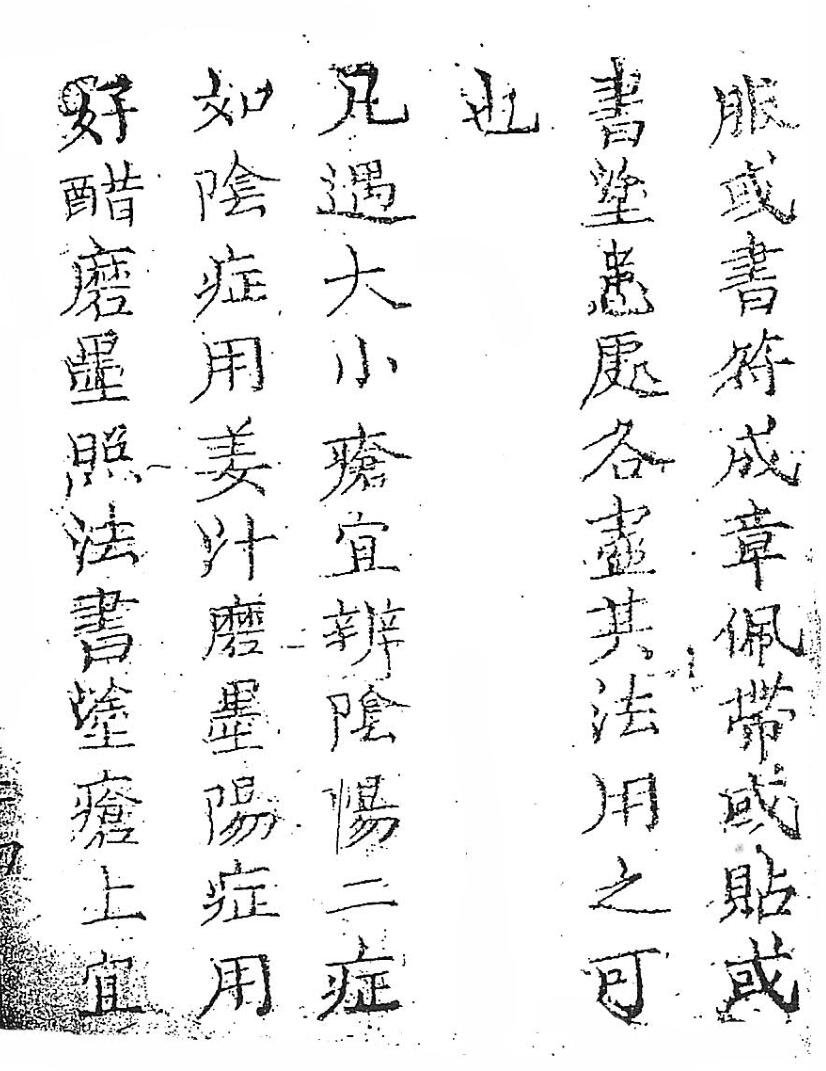 服或書符成章佩帶或貼或
書塗患處各盡其法用之可
也
凡遇大小瘡宜辨陰陽二症
如陰症用姜汁磨墨陽症用
好醋磨墨照法書塗瘡上宜